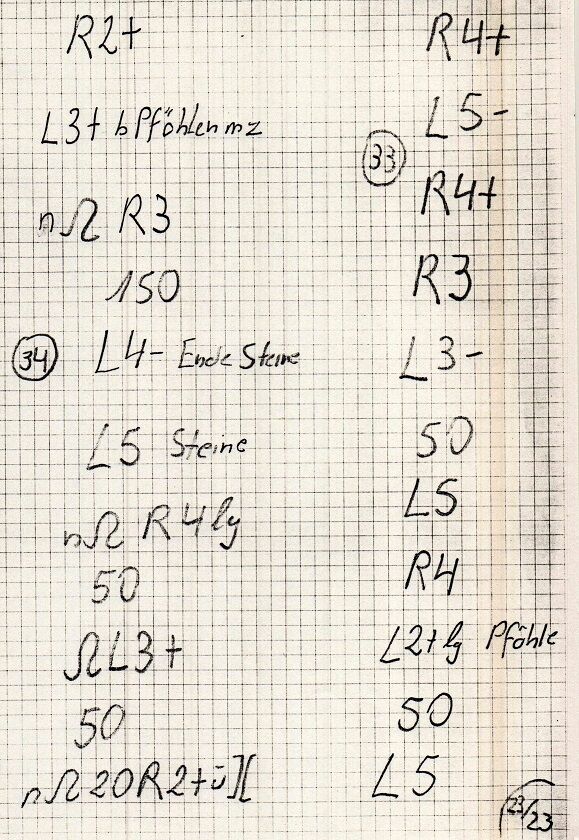 R2+
L3+ b Pföhlen mz
nΩ R3
150
34 L4- Ende Steine
L5 Steine
nΩ R4 lg
50
ΩL3+
50
nΩ 20R2+ü][
R4+
L5-
33
R4+
R3
L3-
50
L5
R4
L2+ lg Pföhle
50
L5
23/23